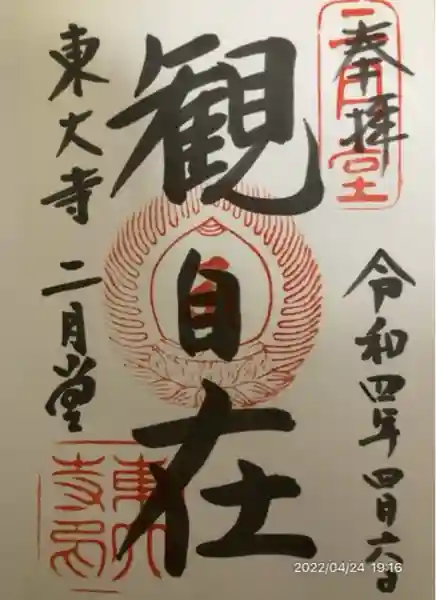 奉拝
二月堂
令和四年四月六日
観自在
東大寺 二月堂
2022/04/24 19:16